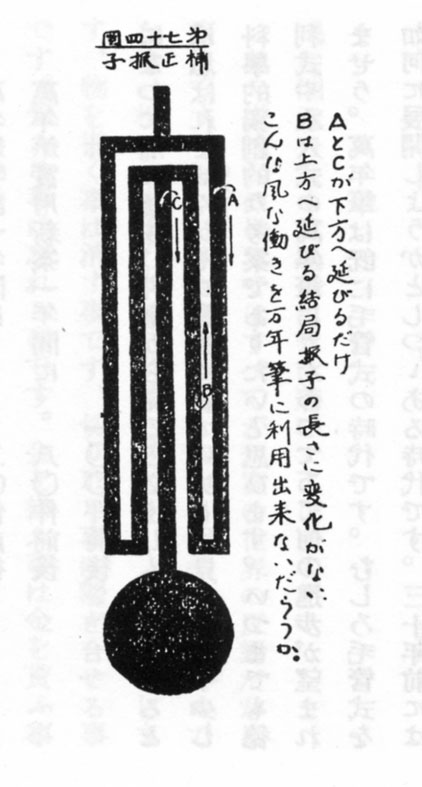 第七十四圖
補正振子
AとCが下方へ延びるだけ
Bは上方へ延びる結局振子の長さに変化がない、
こんな風な働きを万年筆に利用出来ないだらうか。
A
C
B